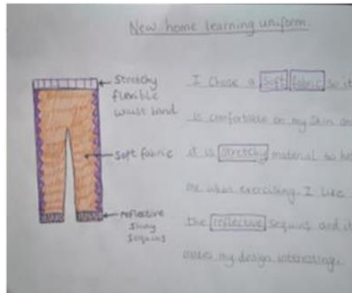 New home learning uniform
stretchy
flexible
waist band
soft fabric
reflective
shiny
sequins
I chose a soft fabric so it
is comfortable on my skin and
it is stretchy material to
me when exercising. I like
the reflective sequins and it
makes my design interesting.